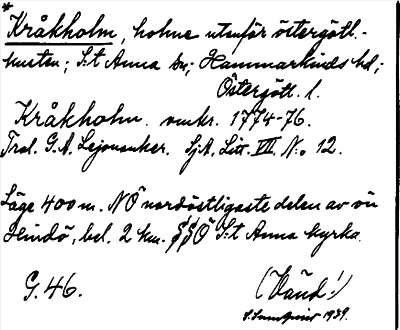 * Kråkholm, holme utenför östergötl.-
kusten; S:t Anna sn; Hammarkinds hd;
Östergötl. l.
Kråkholm. omkr. 1774-76.
G. A. Lejonanker. SjA, Litt. VII. N:o 12.
Läge 400 m. NÖ nordöstligaste delen av ön
, bel. 2 km. SSÖ S:t Anna kyrka.
G. 46.
(Vänd!)
1939.